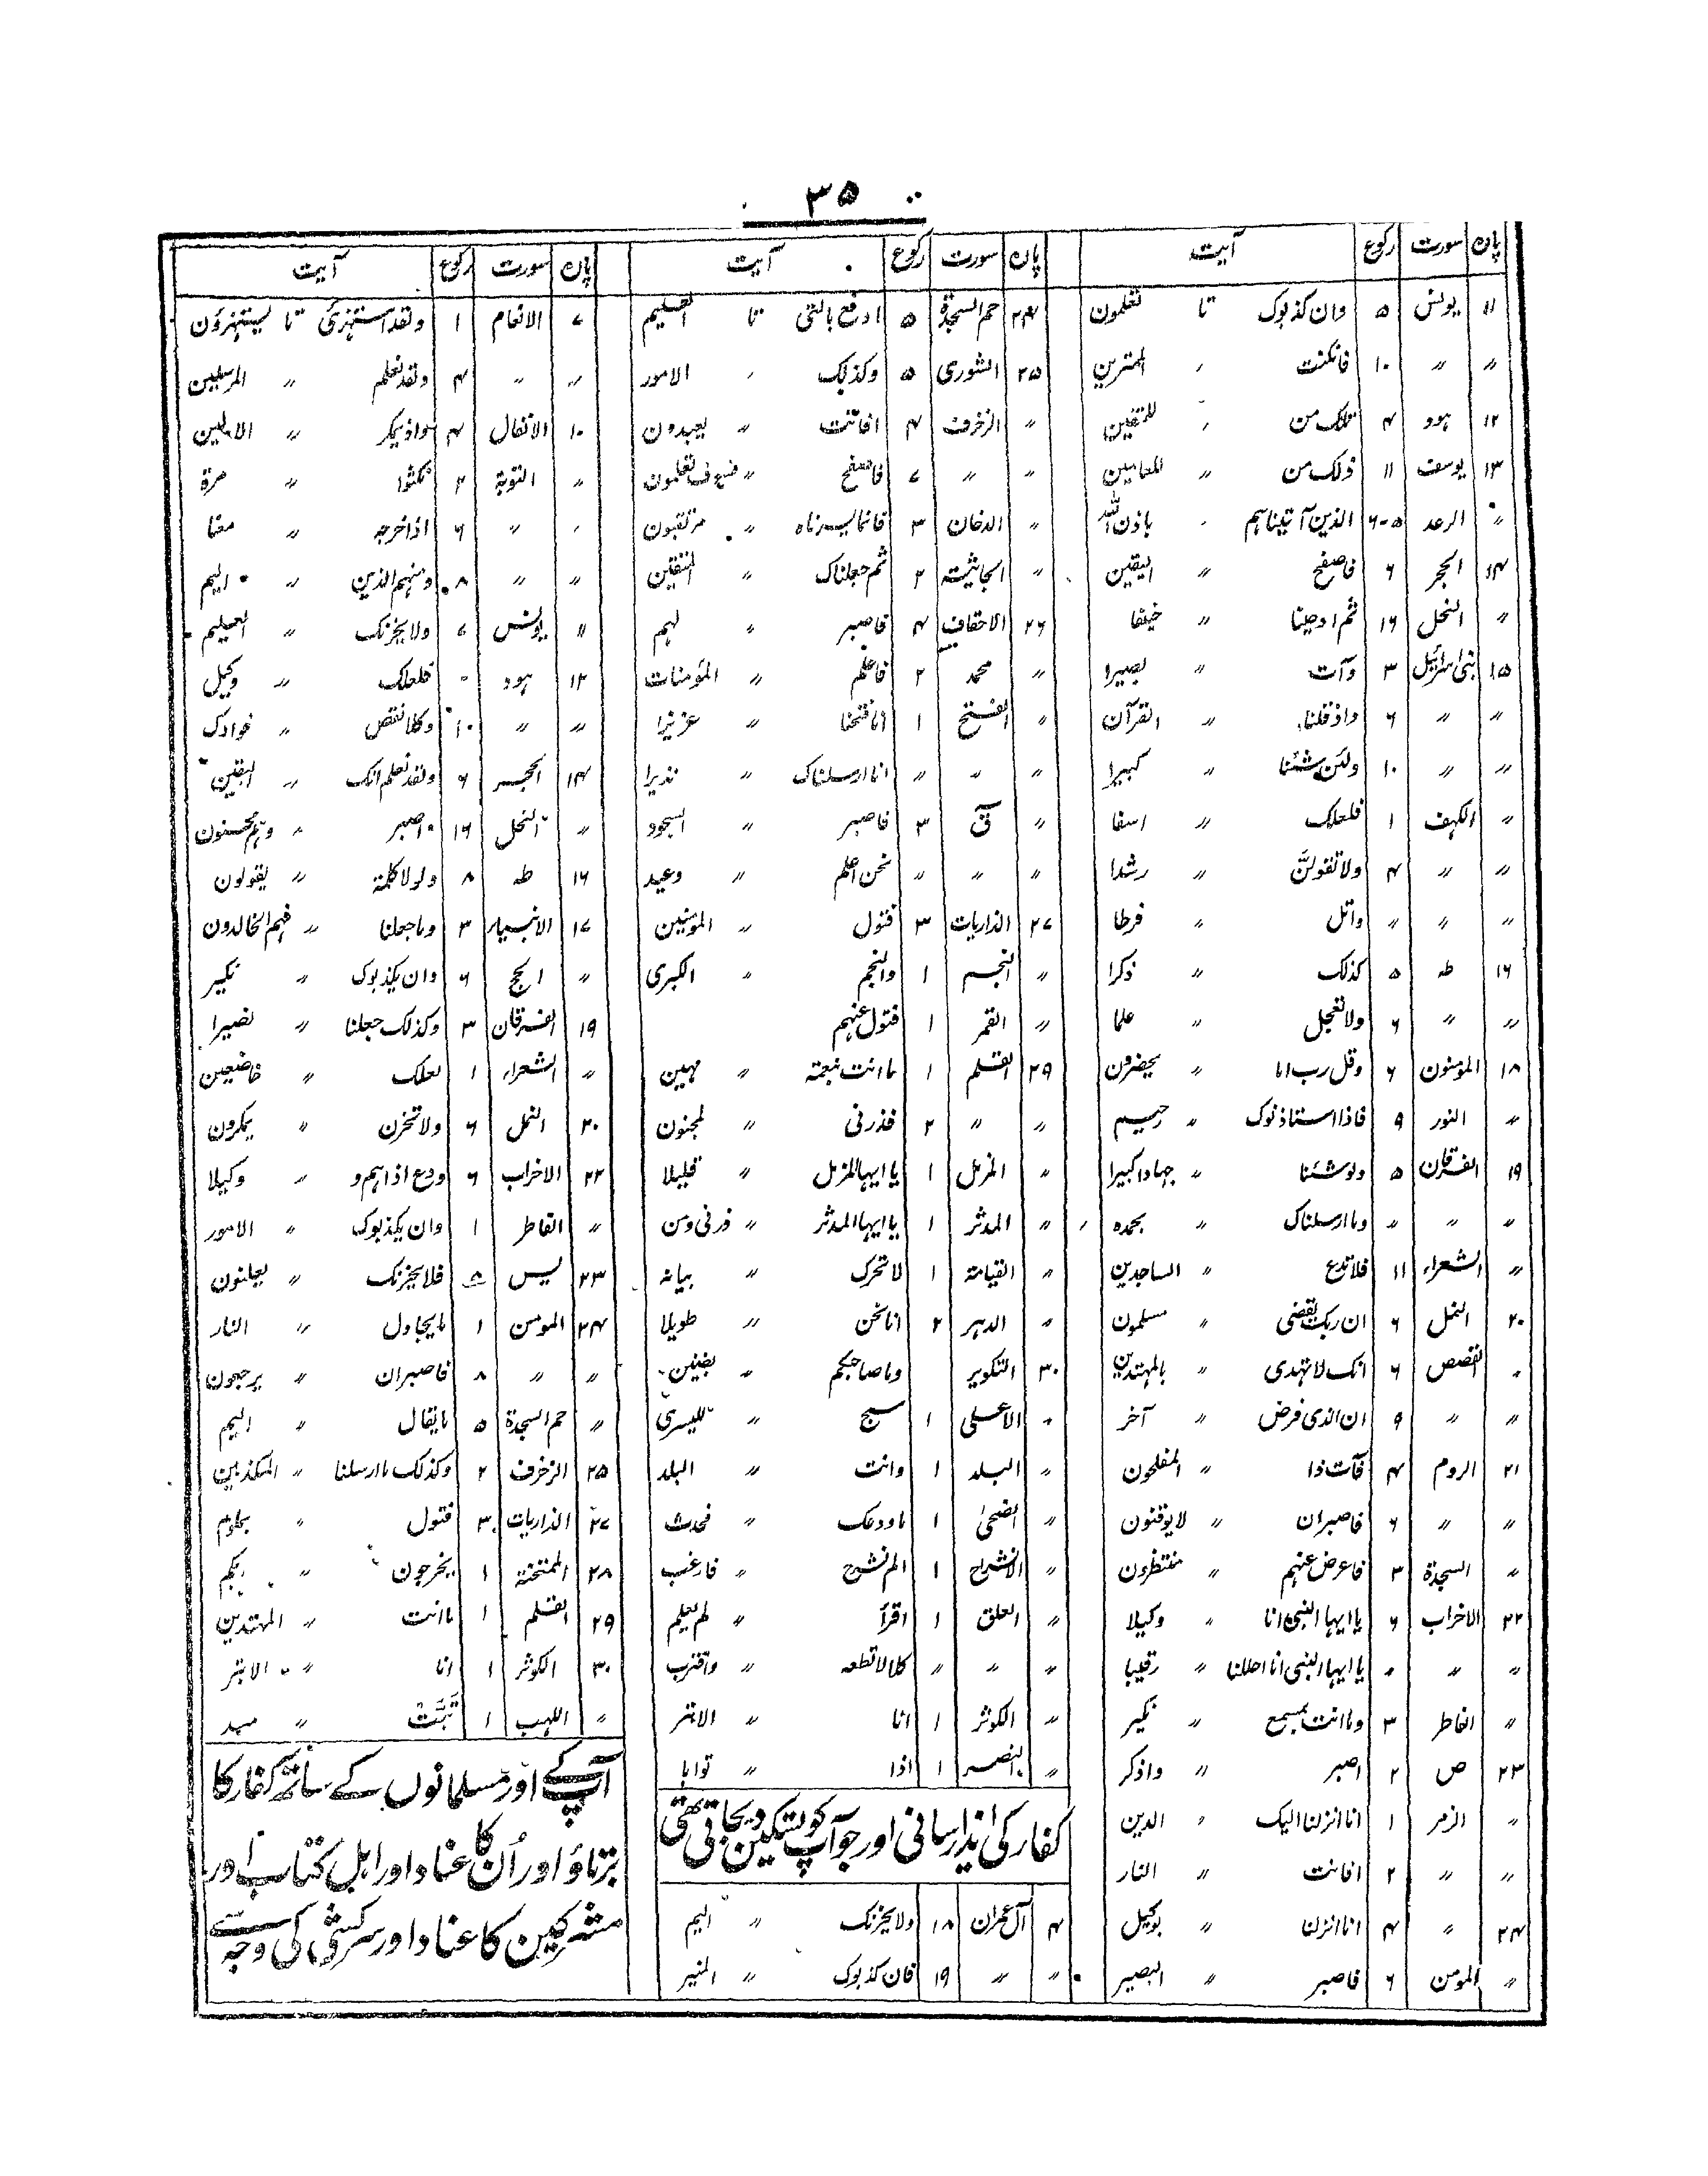 ۳۵
پارہ سورت رکوع آیت
۱۱ یونس ۵ وان کذبوک تا تعلمون
〃 〃 ۱۰ فان کنت 〃 الممترین
۱۲ ہود ۴ تلک من 〃 للمتقین
۱۳ یوسف ۱۱ ذلک من 〃 للعالمین
〃 الرعد ۵-۶ الذین آتیناہم 〃 باذن اللہ
۱۴ الحجر ۶ فاصفح 〃 الیقین
〃 النحل ۱۶ ثم اوحینا 〃 حنیفا
۱۵ بنی اسرائیل ۳ وآت 〃 بصیرا
〃 〃 ۶ واذ قلنا 〃 القرآن
〃 〃 ۱۰ ولئن شئنا 〃 کبیرا
〃 الکہف ۱ فلعلک 〃 اسفا
〃 〃 ۴ ولا تقولنّ 〃 رشدا
〃 〃 〃 واتل 〃 فرطا
۱۶ طہ ۵ کذلک 〃 ذکرا
〃 〃 ۶ ولا تعجل 〃 علما
۱۸ المؤمنون ۶ وقل رب اما 〃 یحضرون
〃 النور ۹ فاذا استاذنوک 〃 رحیم
۱۹ الفرقان ۵ ولو شئنا 〃 جہادا کبیرا
〃 〃 〃 وما ارسلناک 〃 بحمدہ
〃 الشعراء ۱۱ فلا تدع 〃 الساجدین
۲۰ النمل ۶ ان ربک یقضی 〃 مسلمون
〃 القصص ۶ انک لا تہدی 〃 بالمہتدین
〃 〃 ۹ ان الذی فرض 〃 آخر
۲۱ الروم ۴ فآت ذا 〃 المفلحون
〃 〃 ۶ فاصبر ان 〃 لا یوقنون
〃 السجدۃ ۳ فاعرض عنہم 〃 منتظرون
۲۲ الاحزاب ۶ یا ایہا النبی انا 〃 وکیلا
〃 〃 〃 یا ایہا النبی انا احللنا 〃 رقیبا
〃 الفاطر ۳ وما انت بمسمع 〃 نکیر
۲۳ ص ۲ اصبر 〃 واذکر
〃 الزمر ۱ انا انزلنا الیک 〃 الدین
〃 〃 ۲ افانت 〃 النار
۲۴ 〃 ۴ انا انزلنا 〃 بوکیل
〃 المومن ۶ فاصبر 〃 البصیر
پارہ سورت رکوع آیت
۲۴ حم السجدۃ ۵ ادفع بالتی تا العلیم
۲۵ الشوری ۵ وکذلک 〃 الامور
〃 الزخرف ۴ افانت 〃 یعبدون
〃 〃 ۷ فاصفح 〃 فسوف تعلمون
〃 الدخان ۳ فانما یسرناہ 〃 مرتقبون
〃 الجاثیۃ ۲ ثم جعلناک 〃 المتقین
۲۶ الاحقاف ۴ فاصبر 〃 لہم
〃 محمد ۲ فاعلم 〃 المؤمنات
〃 الفتح ۱ انا فتحنا 〃 عزیزا
〃 〃 〃 انا ارسلناک 〃 نذیرا
〃 قٓ ۳ فاصبر 〃 السجود
〃 〃 〃 نحن اعلم 〃 وعید
۲۷ الذاریات ۳ فتول 〃 المومنین
〃 النجم ۱ والنجم 〃 الکبری
〃 القمر ۱ فتول عنہم
۲۹ القلم ۱ ما انت بنعمۃ 〃 مہین
〃 〃 ۲ فذرنی 〃 لمجنون
〃 المزمل ۱ یا ایہا المزمل 〃 قلیلا
〃 المدثر ۱ یا ایہا المدثر 〃 ذرنی ومن
〃 القیامۃ ۱ لا تحرک 〃 بیانہ
〃 الدہر ۲ انا نحن 〃 طویلا
۳۰ التکویر وما صاحبکم 〃 بضنین
〃 الاعلی ۱ سبح 〃 للیسری
〃 البلد ۱ وانت 〃 البلد
〃 الضحیٰ ۱ ما ودعک 〃 فحدث
〃 الانشراح ۱ الم نشرح 〃 فارغب
〃 العلق ۱ اقرأ 〃 لم یعلم
〃 〃 〃 کلا لا تطعہ 〃 واقترب
〃 الکوثر ۱ انا 〃 الابتر
〃 النصر ۱ اذا 〃 توابا
کفار کی ایذا رسانی اور جو آپ کو تسکین دیجاتی تھی
۴ آل عمران ۱۸ ولا یحزنک 〃 الیم
〃 〃 ۱۹ فان کذبوک 〃 المنیر
پارہ سورت رکوع آیت
۷ الانعام ۱ ولقد استہزئ تا یستہزؤن
〃 〃 ۴ ولقد نعلم 〃 المرسلین
۱۰ الانفال ۴ واذ یمکر 〃 الاولین
〃 التوبۃ ۲ نکثوا 〃 مرۃ
〃 〃 ۶ اذ اخرجہ 〃 معنا
〃 〃 ۸ ومنہم الذین 〃 الیم
۱۱ یونس ۷ ولا یحزنک 〃 العلیم
۱۲ ہود فلعلک 〃 وکیل
〃 〃 ۱۰ وکلا نقص 〃 فوادک
۱۴ الحجر ۶ ولقد نعلم انک 〃 الیقین
〃 النحل ۱۶ اصبر 〃 وہم محسنون
۱۶ طہ ۸ ولولا کلمۃ 〃 یقولون
۱۷ الانبیاء ۳ وما جعلنا 〃 فہم الخالدون
〃 الحج ۶ وان یکذبوک 〃 نکیر
۱۹ الفرقان ۳ وکذلک جعلنا 〃 نصیرا
〃 الشعراء ۱ لعلک 〃 خاضعین
۲۰ النمل ۶ ولا تحزن 〃 یمکرون
۲۲ الاحزاب ۶ ودع اذاہم و 〃 وکیلا
〃 الفاطر ۱ وان یکذبوک 〃 الامور
۲۳ یس ۵ فلا یحزنک 〃 یعلنون
۲۴ المومن ۱ ما یجادل 〃 النار
〃 〃 ۸ فاصبر ان 〃 یرجعون
〃 حم السجدۃ ۵ ما یقال 〃 الیم
۲۵ الزخرف ۲ وکذلک ما ارسلنا 〃 المکذبین
۲۷ الذاریات ۳ فتول 〃 بملوم
۲۸ الممتحنۃ ۱ یخرجون 〃 ربکم
۲۹ القلم ۱ ما انت 〃 المہتدین
۳۰ الکوثر ۱ انا 〃 الابتر
〃 اللہب ۱ تَبَّتْ 〃 مسد
آپ کے اور مسلمانوں کے ساتھ کفار کا
برتاؤ اور اُن کا عناد اور اہل کتاب اور
مشرکین کا عناد اور سرکشی کی وجہ سے